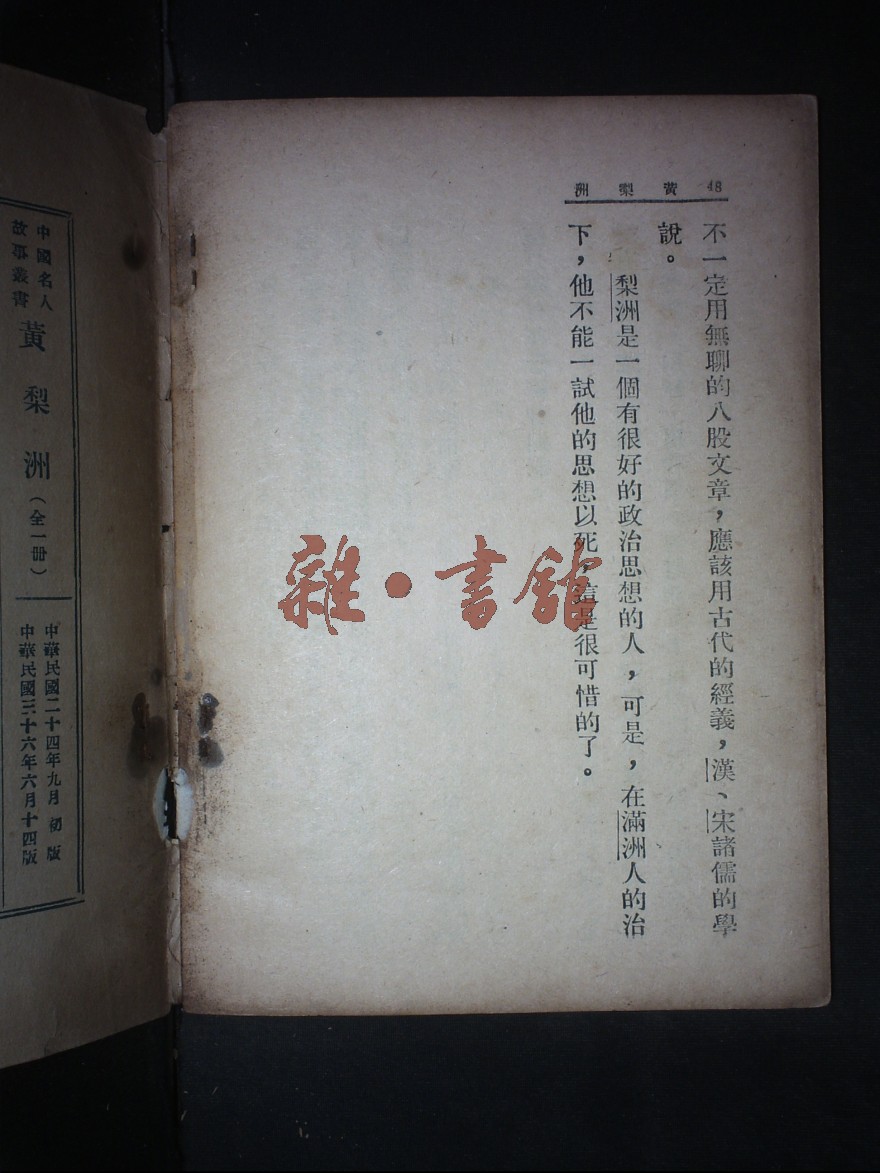 48 黃梨洲
不一定用無聊的八股文章，應該用古代的經義，漢、宋諸儒的學
說。
梨洲是一個有很好的政治思想的人，可是，在滿洲人的治
下，他不能一試他的思想以死，這是很可惜的了。
雜·書館
中國名人
故事叢書
黃梨洲（全一冊）
中華民國二十四年九月初版
中華民國三十六年六月十四版